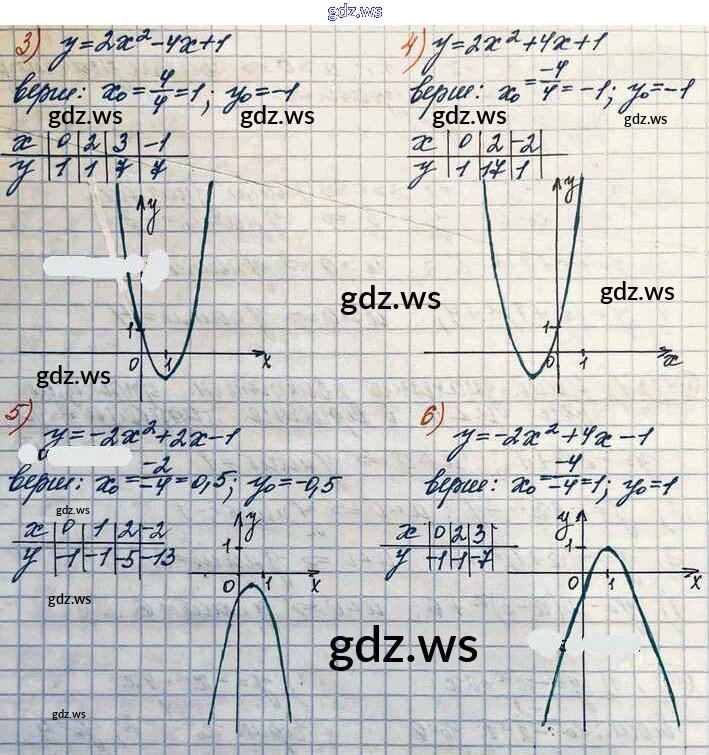 gdz.ws
3) y=2x²-4x+1
верш: x₀=4/4=1; y₀=-1
gdz.ws gdz.ws
x | 0 | 2 | 3 | -1
y | 1 | 1 | 7 | 7
y
1
0 1 x
gdz.ws
4) y=2x²+4x+1
верш: x₀=-4/4=-1; y₀=-1
gdz.ws gdz.ws
x | 0 | 2 | -2
y | 1 | 17 | 1
y
gdz.ws
gdz.ws
1
0 1 x
5) y=-2x²+2x-1
верш: x₀=-2/-4=0,5; y₀=-0,5
gdz.ws
x | 0 | 1 | 2 | -2
y | -1 | -1 | -5 | -13
y
1
0 1 x
gdz.ws
gdz.ws
gdz.ws
6) y=-2x²+4x-1
верш: x₀=-4/-4=1; y₀=1
x | 0 | 2 | 3
y | -1 | -1 | -7
y
1
0 1 x